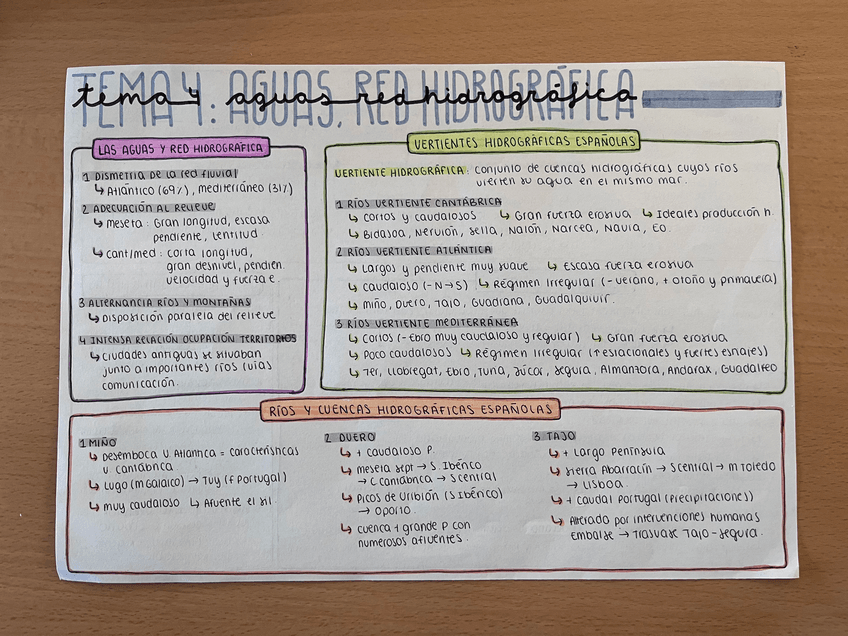 TEMA 4: AGUAS, RED HIDROGRÁFICA
tema 4 aguas red hidrográfica
LAS AGUAS Y RED HIDROGRÁFICA
1 Dismetria de la red fluvial
↳ Atlántico (69%), mediterráneo (31%)
2 ADECUACIÓN AL RELIEVE
↳ meseta: Gran longitud, escasa
pendiente, lentitud.
↳ cant/med: corta longitud,
gran desnivel, pendien.
velocidad y fuerza e.
3 ALTERNANCIA RÍOS Y MONTAÑAS
↳ Disposición paralela del relieve
4 INTENSA RELACIÓN OCUPACIÓN TERRITORIOS
↳ Ciudades antiguas se situaban
junto a importantes ríos (vías
comunicación.
VERTIENTES HIDROGRÁFICAS ESPAÑOLAS
VERTIENTE HIDROGRÁFICA: conjunto de cuencas hidrográficas cuyos ríos
vierten su agua en el mismo mar.
1 RÍOS VERTIENTE CANTÁBRICA
↳ Cortos y caudalosos ↳ Gran fuerza erosiva ↳ Ideales producción h.
↳ Bidasoa, Nervión, Sella, Nalón, Narcea, Navia, Eo.
2 RÍOS VERTIENTE ATLÁNTICA
↳ Largos y pendiente muy suave ↳ Escasa fuerza erosiva
↳ caudaloso (-N→S) ↳ Régimen Irregular (-verano, + otoño y primavera)
↳ miño, Duero, Tajo, Guadiana, Guadalquivir.
3 RÍOS VERTIENTE MEDITERRÁNEA
↳ Cortos (-Ebro muy caudaloso y regular) ↳ Gran fuerza erosiva
↳ Poco caudalosos ↳ Régimen Irregular (↑estacionales y fuertes
↳ Ter, Llobregat, Ebro, Turia, Júcar, Segura, Almanzora, Andarax, Guadalfeo
RÍOS Y CUENCAS HIDROGRÁFICAS ESPAÑOLAS
1 MIÑO
↳ Desemboca V. Atlántica = características
V. Cantábrica
↳ Lugo (m Galaico) → Tuy (f Portugal)
↳ muy caudaloso ↳ Afuente el sil.
2 DUERO
↳ + caudaloso P.
↳ meseta sept → S. Ibérico
→ C Cantábrica → S central
↳ Picos de Urbión (S Ibérico)
→ Oporto.
↳ cuenca + grande P con
numerosos afluentes.
3 TAJO
↳ + Largo Península
↳ Sierra Abarracín → S central → m Toledo
→ Lisboa.
↳ + caudal Portugal (Precipitaciones)
↳ Alterado por intervenciones humanas
embalse → Trasvase Tajo-Segura.